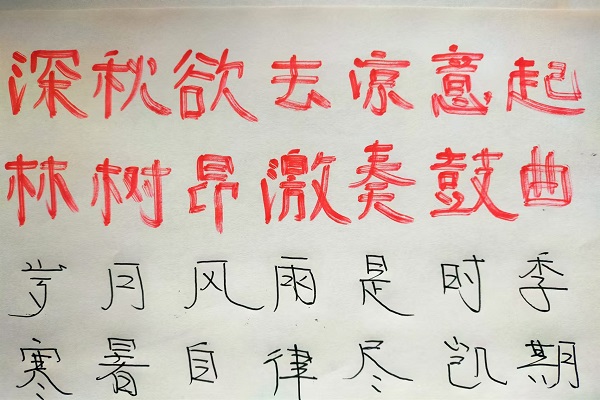 深秋欲去凉意起
林树昂激奏鼓曲
岁月风雨是时季
寒暑自律尽凯期